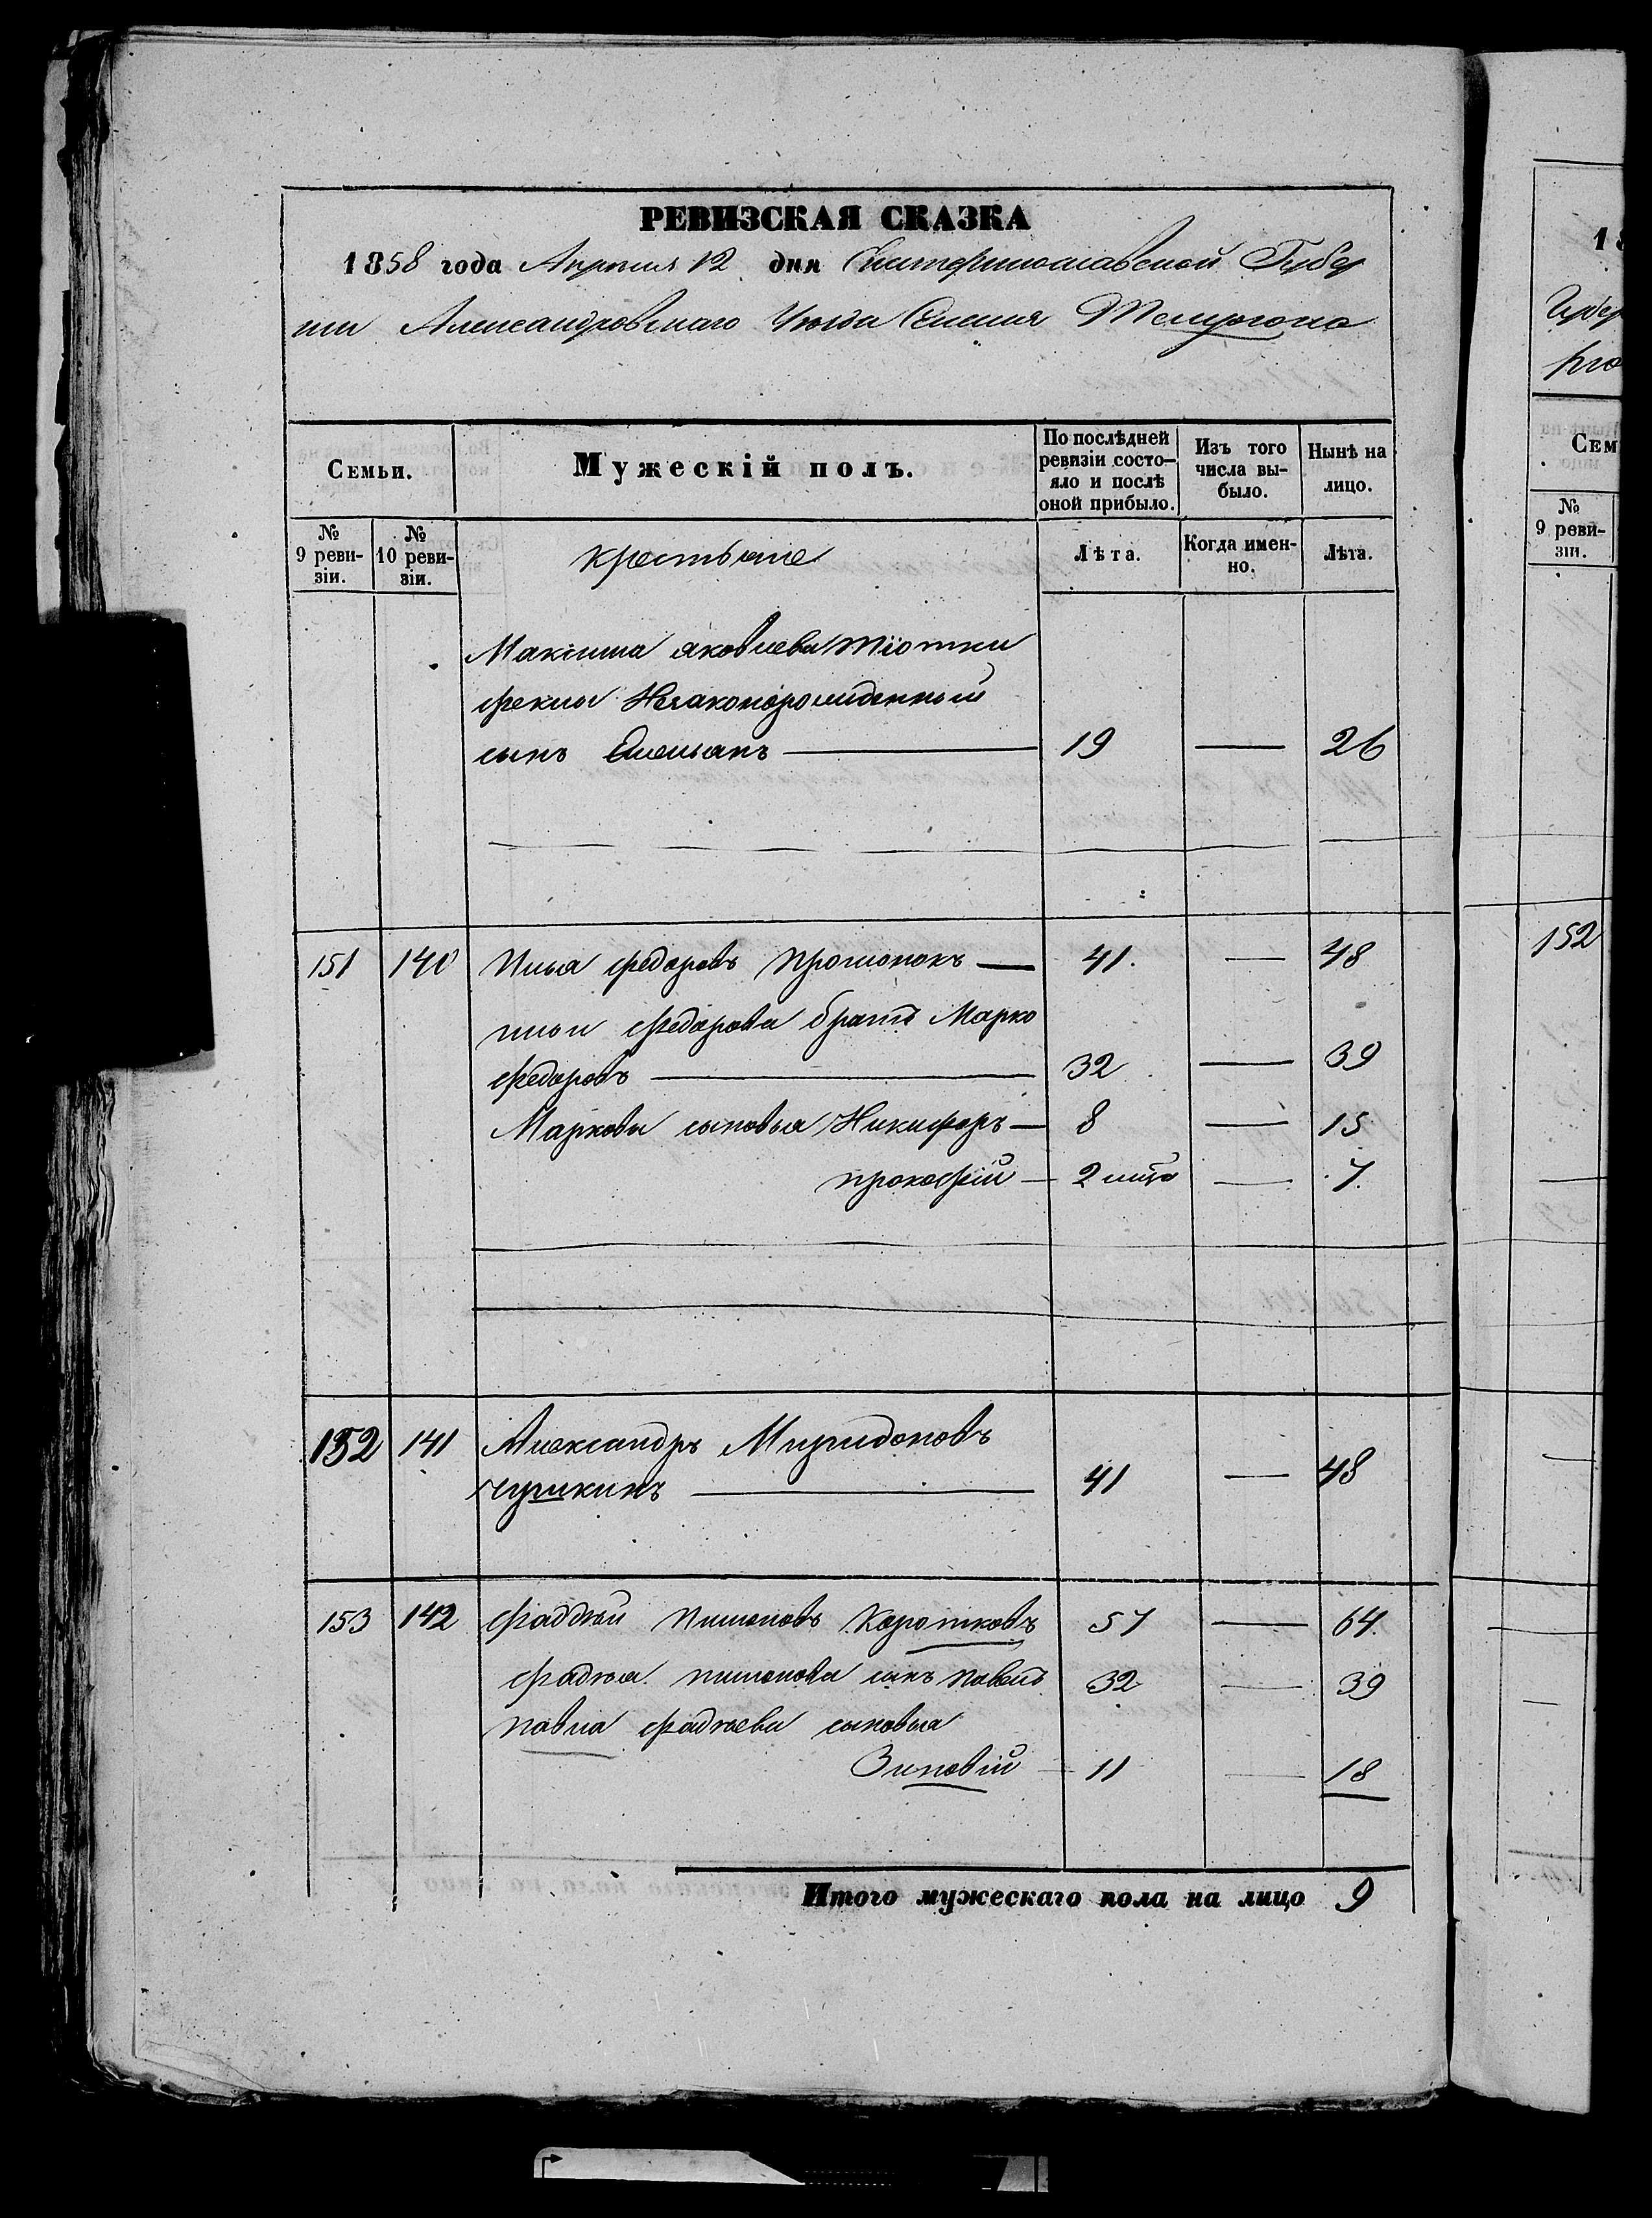 РЕВИЗСКАЯ СКАЗКА
1858 года Апреля 12 дня Екатеринославской Губер
нии Александровскаго Уезда Селения
Семьи.
Мужескій полъ.
По послѣдней ревизіи состо-яло и послѣ оной прибыло.
Изъ того числа вы-было.
Нынѣ на лицо.
№ 9 реви-зіи.
№ 10 реви-зіи.
крестьяне
Лѣта.
Когда имен-но.
Лѣта.
Максима яковлева тіотки
феклы Незаконорожденный
сынъ Емельянъ — 19 — 26
151 140 Илья федоровъ — 41. — 48
ильи федорова братъ Марко
федоровъ — 32 — 39
Марковы сыновья Никифоръ — 8 — 15
прокофій — 2 — 7
152 141 Александръ
чушкинъ — 41 — 48
153 142 фаддѣй Коротковъ 57 — 64
фадѣя сынъ павелъ 32 — 39
павла фадѣева сыновья
Зиновій — 11 — 18
Итого мужескаго пола на лицо 9
18
Губер
Сем
№ 9 реви-зіи.
152